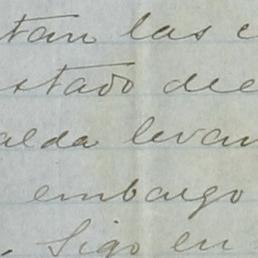 tan las c
stado de
alda levan
embargo
. Sigo en